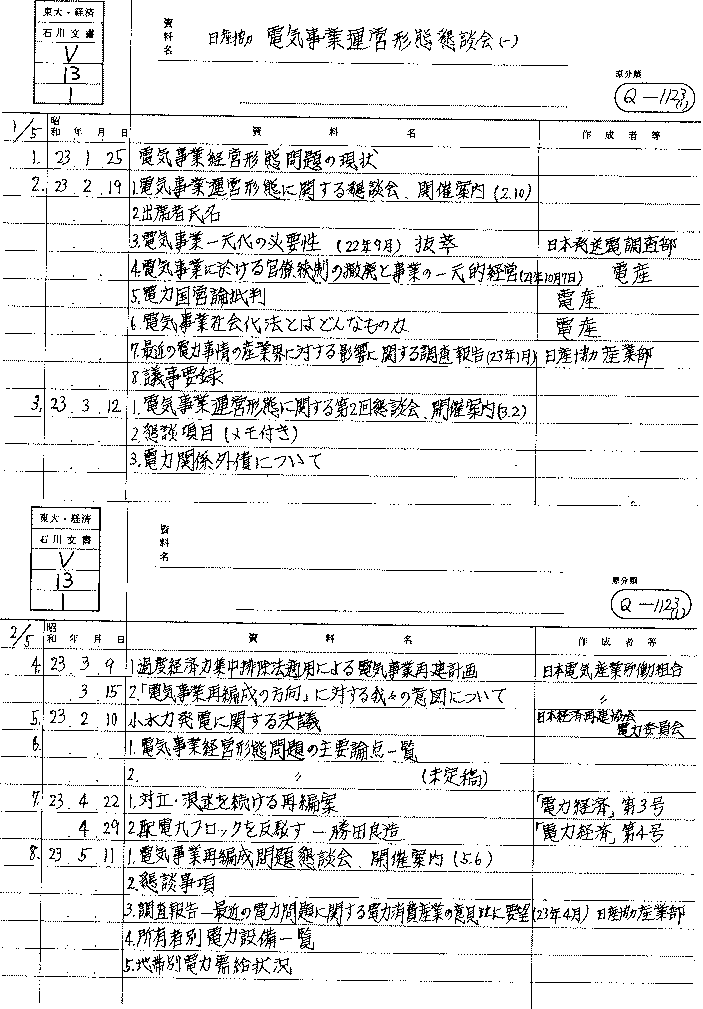 東大・経済
石川文書
V
13
1
資料名 日産協 電気事業運営形態懇談会(一)
原分類
Q-1123(1)
1/5 昭和 年 月 日 資料名 作成者等
1. 23 1 25 電気事業経営形態問題の現状
2. 23 2 19 1.電気事業運営形態に関する懇談会、開催案内(2.10)
2.出席者氏名
3.電気事業一元化の必要性(22年9月)抜萃 日本発送電調査部
4.電気事業に於ける官僚統制の撤廃と事業の一元的経営(21年10月7日) 電産
5.電力国営論批判 電産
6.電気事業社会化法とはどんなものか 電産
7.最近の電力事情の産業界に対する影響に関する調査報告(23年1月) 日産協産業部
8.議事要録
3. 23 3 12 1.電気事業運営形態に関する第2回懇談会、開催案内(3.2)
2.懇談項目(メモ付き)
3.電力関係外債について
東大・経済
石川文書
V
13
1
資料名
原分類
Q-1123(1)
2/5 昭和 年 月 日 資料名 作成者等
4. 23 3 9 1.過度経済力集中排除法適用による電気事業再建計画 日本電気産業労働組合
3 15 2.「電気事業再編成の方向」に対する我々の意図について 〃
5. 23 2 10 小水力発電に関する決議 日本経済再建協会
電力委員会
6. 1.電気事業経営形態問題の主要論点一覧
2. 〃 (未定稿)
7. 23 4 22 1.対立・混迷を続ける再編案 「電力経済」第3号
4 29 2.配電九ブロックを反駁す―勝田良造 「電力経済」第4号
8. 23 5 11 1.電気事業再編成問題懇談会、開催案内(5.6)
2.懇談事項
3.調査報告―最近の電力問題に関する電力消費産業の意見並に要望(23年4月) 日産協産業部
4.所有者別電力設備一覧
5.地帯別電力需給状況